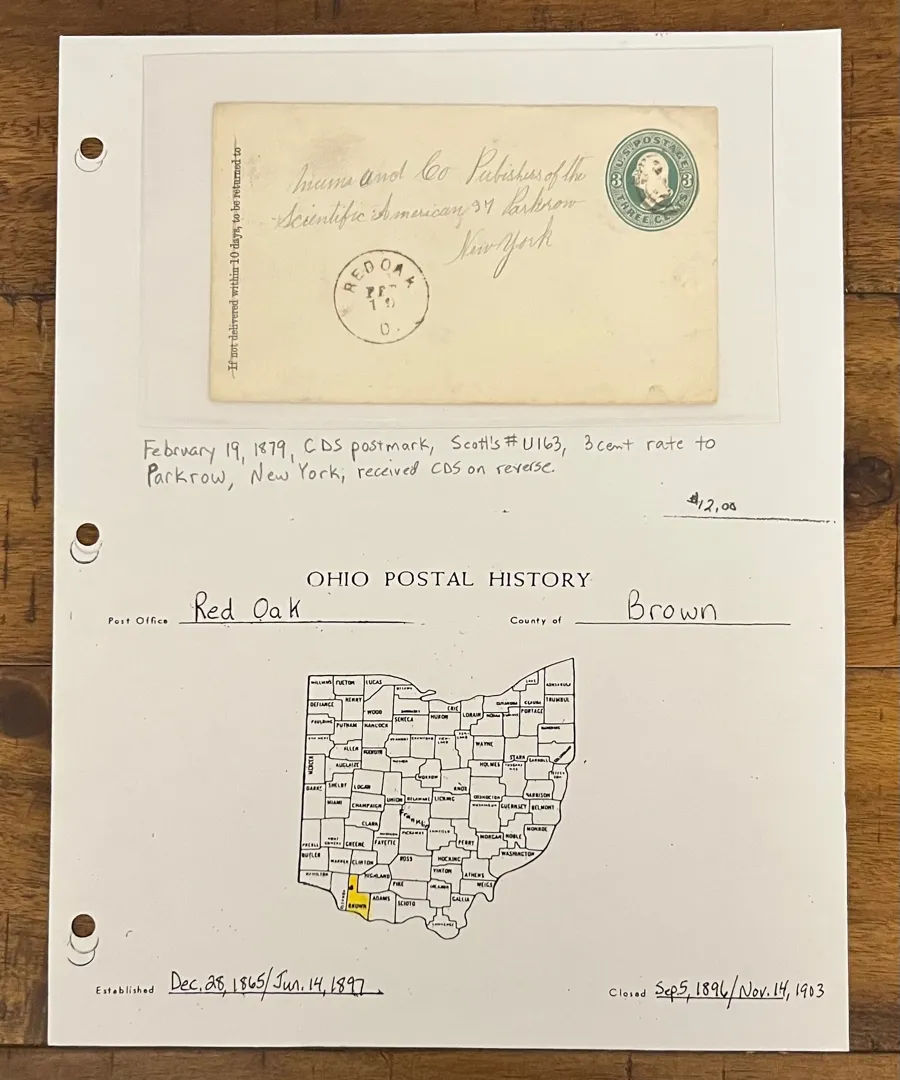 U.S. POSTAGE
3 3
THREE CENTS
If not delivered within 10 days, to be returned to
and Co Publishers of the
Scientific American 37 Parkrow
New York
RED OAK
FEB
19
O.
February 19, 1879, CDS postmark, Scott's # U163, 3 cent rate to
Parkrow, New York, received CDS on reverse.
$12.00
OHIO POSTAL HISTORY
Post Office Red Oak County of Brown
WILLIAMS FULTON LUCAS
LAKE ASHTABULA
DEFIANCE HENRY WOOD ERIE LORAIN TRUMBULL
PAULDING PUTNAM HANCOCK SENECA HURON MEDINA PORTAGE
ALLEN WAYNE STARK
MERCER AUGLAIZE HOLMES
MORROW KNOX
DARKE SHELBY LOGAN UNION DELAWARE LICKING COSHOCTON HARRISON
MIAMI CHAMPAIGN GUERNSEY BELMONT
CLARK Franklin
PREBLE GREENE FAYETTE PICKAWAY PERRY MORGAN NOBLE MONROE
BUTLER WARREN CLINTON ROSS HOCKING WASHINGTON
HAMILTON HIGHLAND PIKE VINTON ATHENS
MEIGS
BROWN ADAMS SCIOTO GALLIA
Established Dec. 28, 1865/Jun. 14, 1897 Closed Sep 5, 1896/Nov. 14, 1903